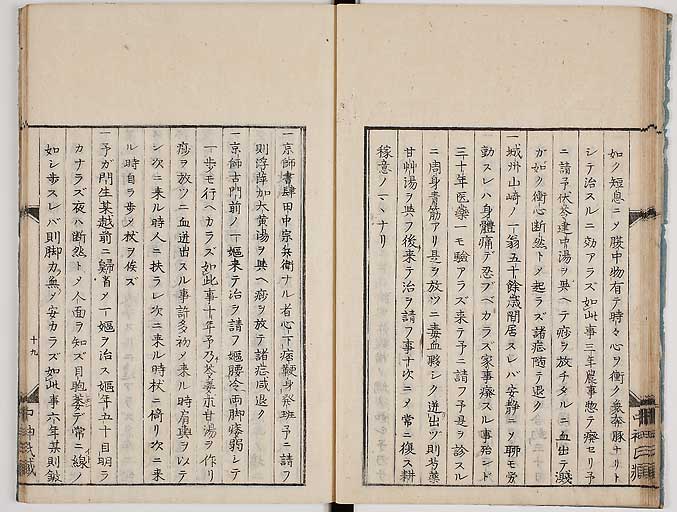 如ク短息ニメ腹中物有テ時々心ヲ衝ク衆奔豚ナリト
シテ治スルニ効アラズ如此事三年農事惣テ癈セリ予
ニ請フ予茯苓建中湯ヲ與ヘテ痧ヲ放チタルニ血出テ濺
ガ如ク衝心断然トメ起ラズ諸症随テ退ク
一城州山崎ノ一翁五十餘歳間居スレバ安静ニメ聊モ労
動スレハ身體痛テ忍ブベカラズ家事癈スル事殆ンド
三十年医藥一モ験アラズ来テ予ニ請フ予是ヲ診スル
ニ周身青筋アリ是ヲ放ツニ毒血夥シク迸出ヅ則芍藥
甘艸湯ヲ與フ後来テ治ヲ請フ事十次ニメ常ニ復ス耕
稼意ノ丶丶ナリ
一京師書肆田中宗兵衛ナル者心下痞鞕身発斑予ニ請フ
則浮萍加大黄湯ヲ與ヘ痧ヲ放テ諸症咸退ク
一京師古門前ノ一嫗来テ治ヲ請フ嫗腰冷両脚痿弱シテ
一歩モ行ヘカラズ如此事十年予乃苓姜朮甘湯ヲ作リ
痧ヲ放ツニ血迸出スル事許多初メ来ル時肩輿ヲ以テ
シ次ニ来ル時人ニ扶ラレ次ニ来ル時杖ニ倚リ次ニ来
ル時自ラ歩メ杖ヲ俟ズ
一予ガ門生某越前ニ歸省メ一嫗ヲ治ス嫗年五十目明ラ
カナラズ夜ハ断然トメ人面ヲ知ズ目胞萎テ常ニ線ノ
如シ歩スレバ則脚力無メ安カラズ如此事六年某則鍼
十九